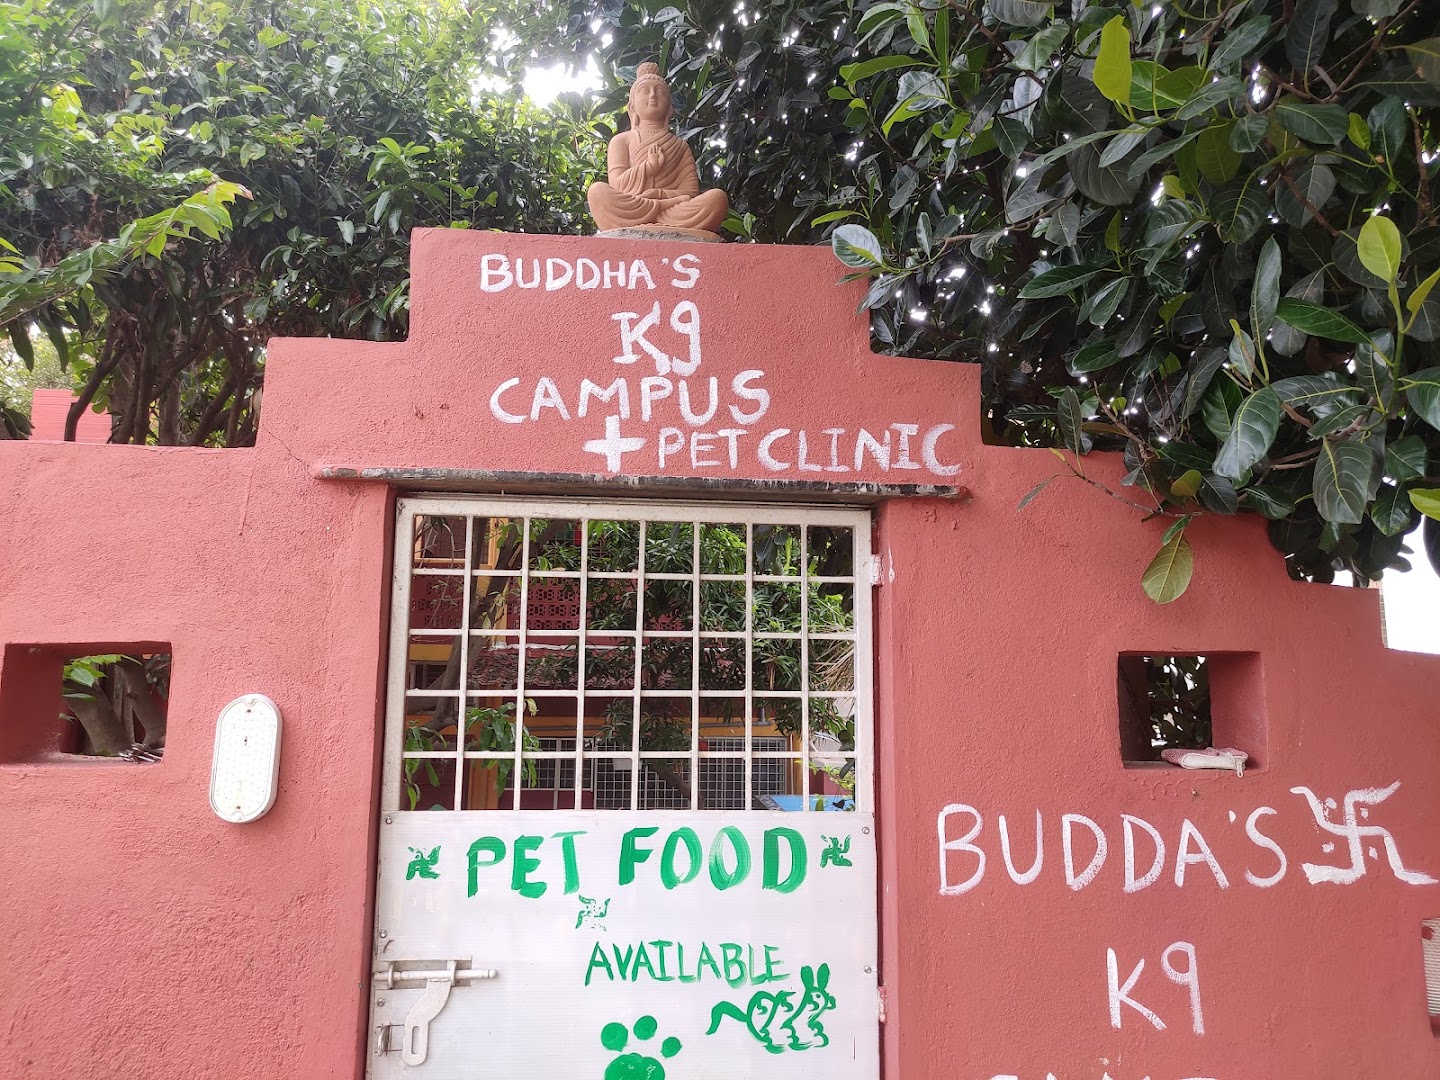 BUDDHA'S
K9
CAMPUS
+ PET CLINIC
PET FOOD
AVAILABLE
BUDDA'S
K9